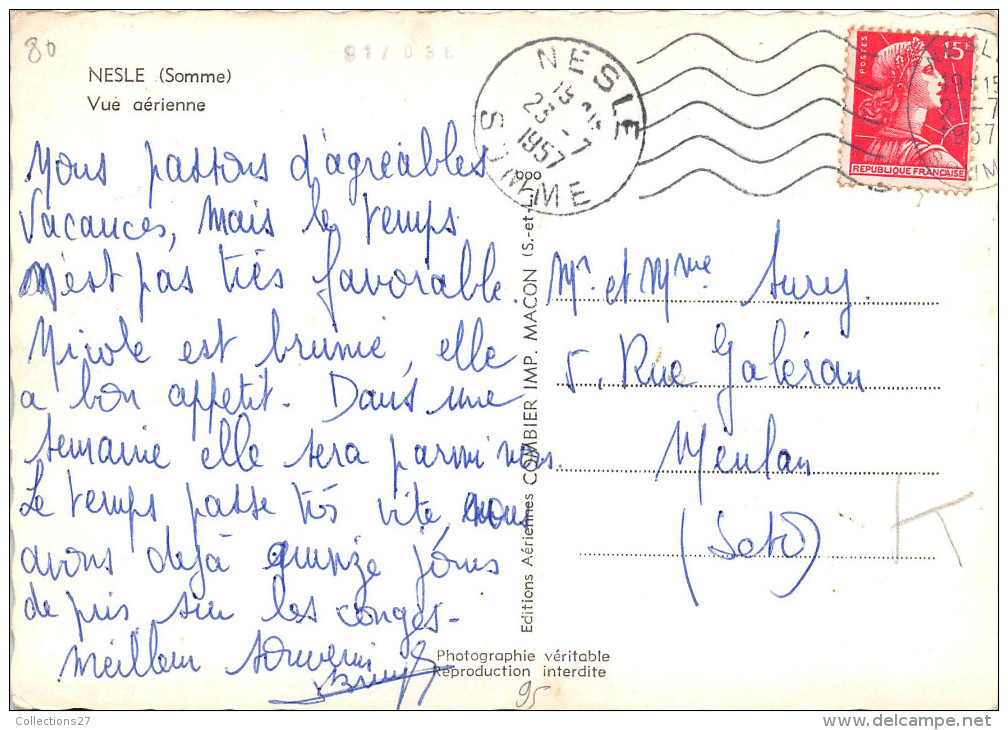 80
NESLE (Somme)
Vue aérienne
NESLE
23-7
1957
SOMME
POSTES
15
REPUBLIQUE FRANÇAISE
Nous passons d'agréables
vacances, mais le temps
n'est pas très favorable.
Nicole est brunie, elle
a bon appetit. Dans une
semaine elle sera parmi vous.
Le temps passe très vite, nous
avons dejà quinze jours
de pris sur les congés.
Meilleur souvenir
Mr. et Mme Aury.
5, Rue Galéran
Meulan
(Set O)
Editions Aériennes COMBIER IMP. MACON (S.-et-L.)
Photographie véritable
Reproduction interdite
95
Collections27
delcampe.net